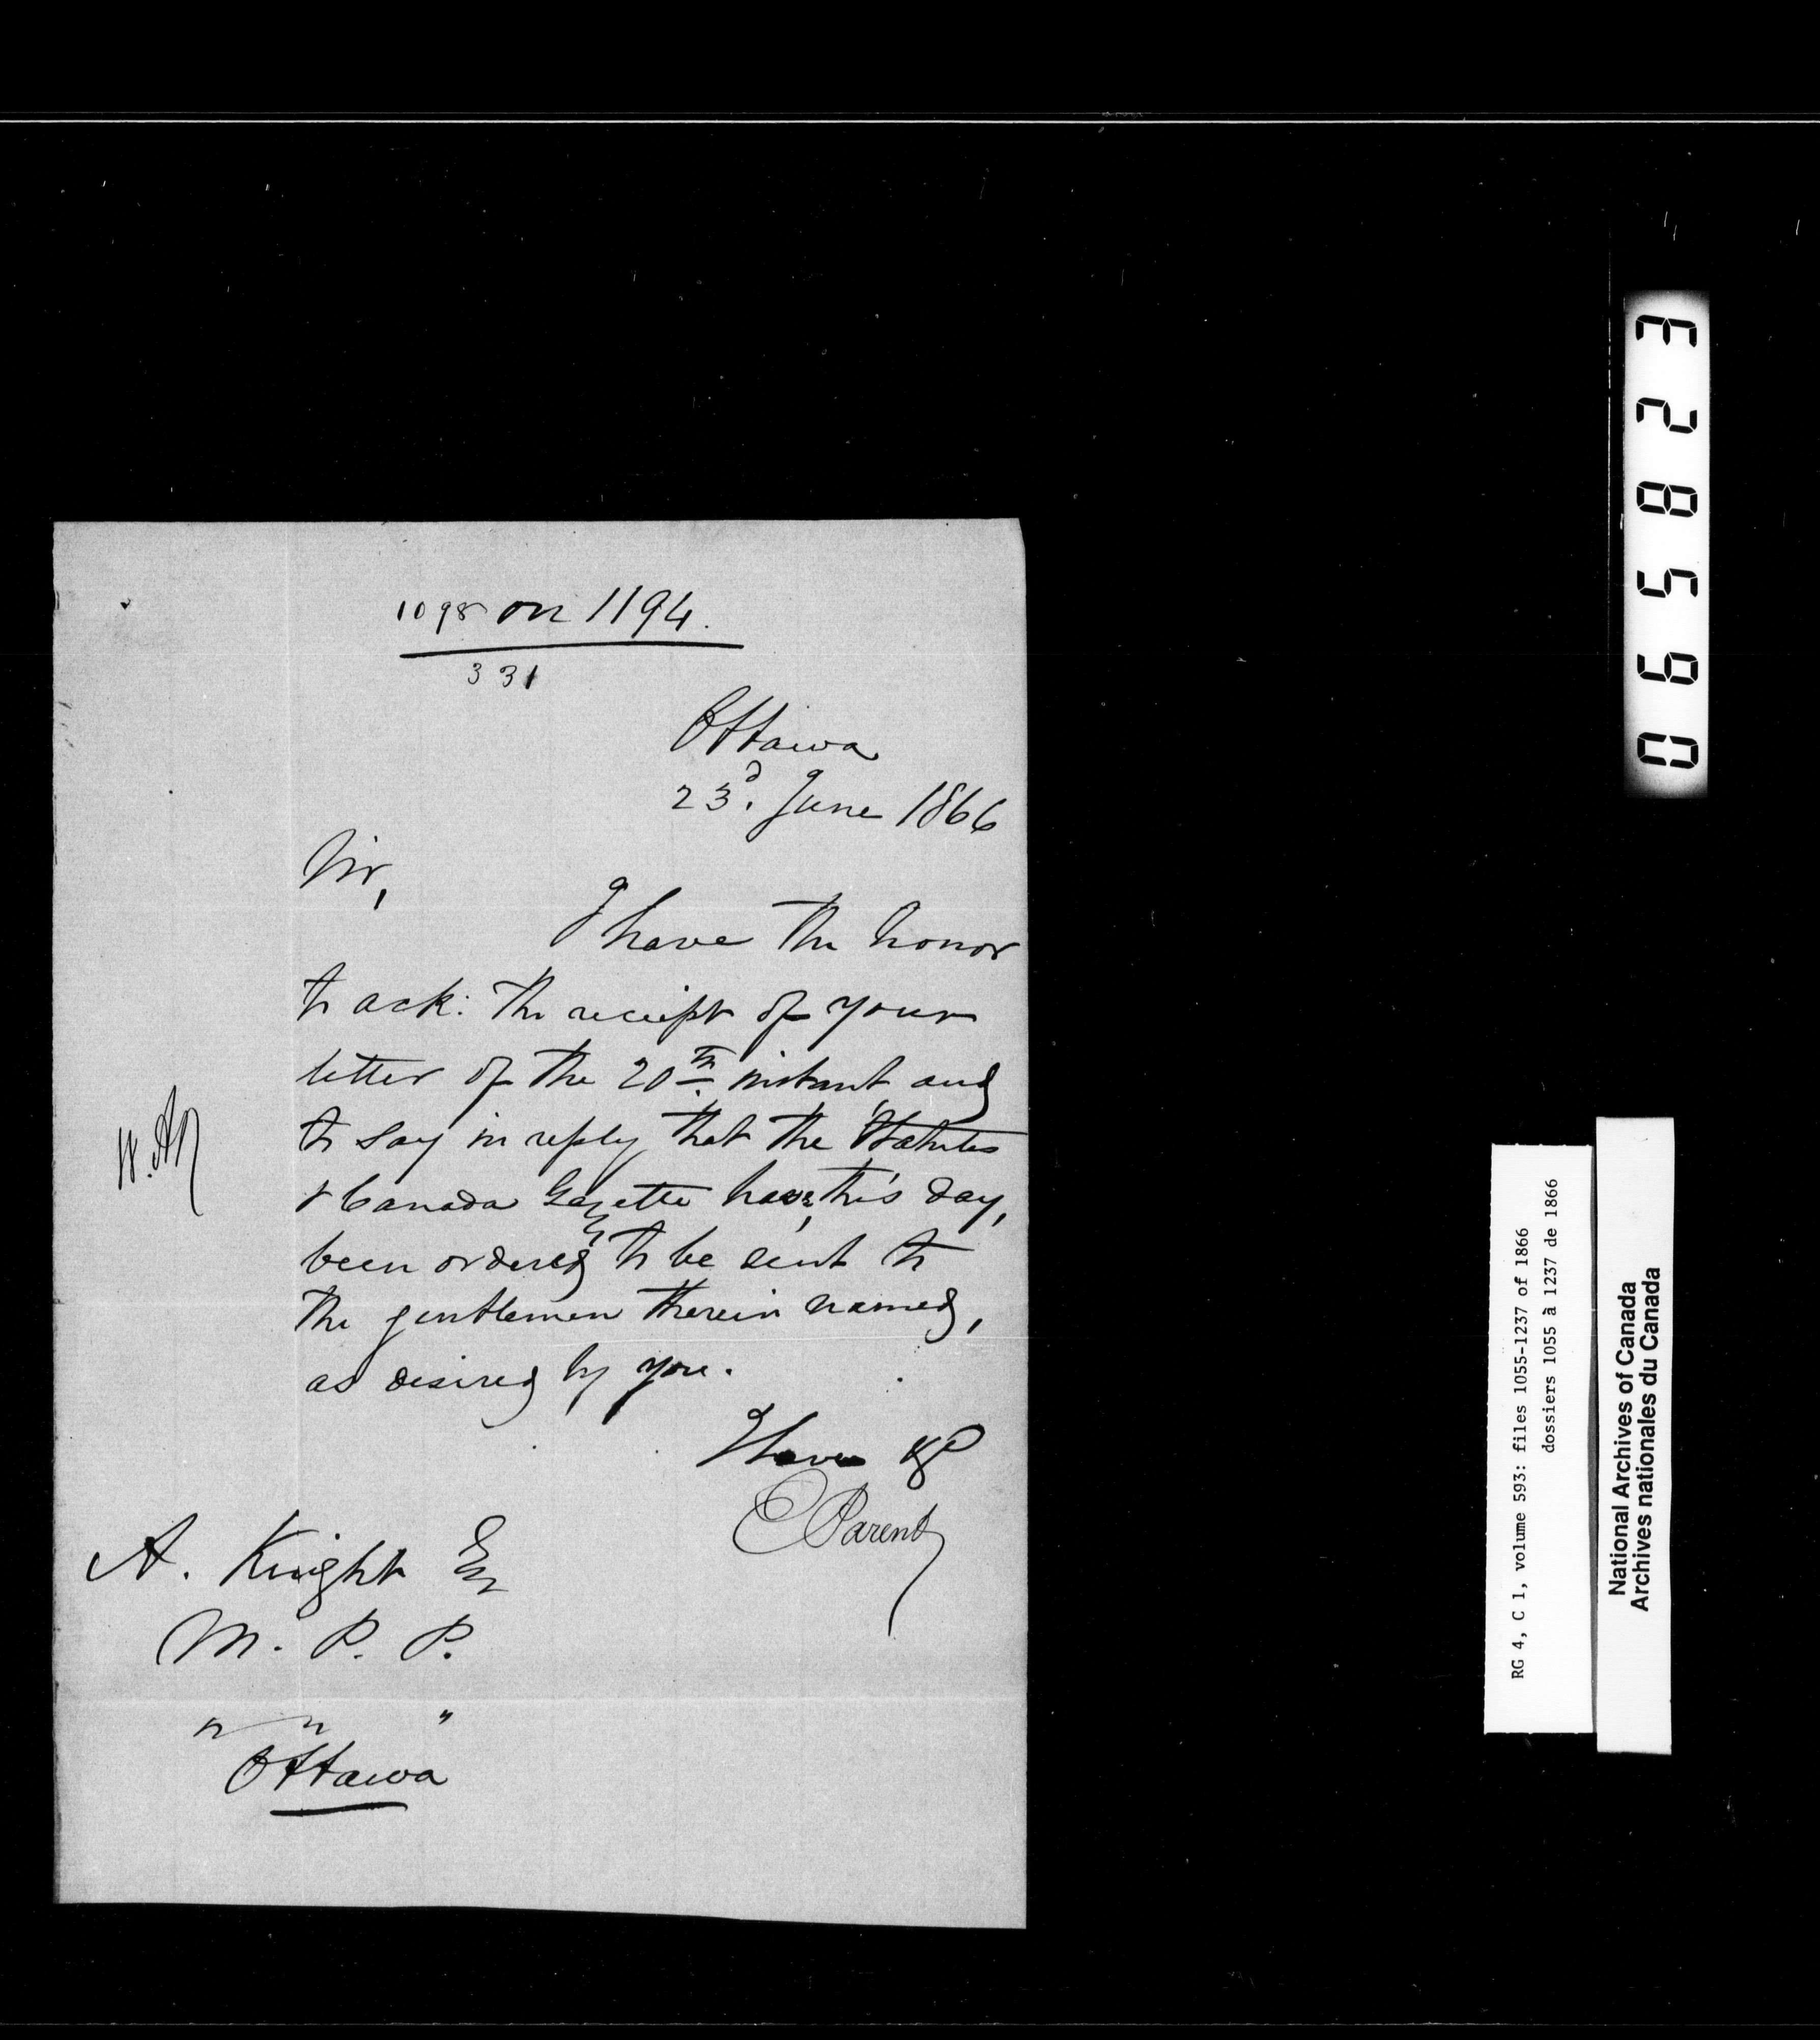 1098 on 1194.
331
Ottawa
23d. June 1866
Sir,
I have the honor
to ack: the receipt of your
letter of the 20th. instant and
to say in reply that the Statutes
& Canada Gazette have, this day,
been ordered to be sent to
the gentlemen therein named,
as desired by you.
I have &c
E Parent
A. Knight Esq
M. P. P.
" " "
Ottawa
065823
RG 4, C 1, volume 593: files 1055-1237 of 1866
dossiers 1055 à 1237 de 1866
National Archives of Canada
Archives nationales du Canada